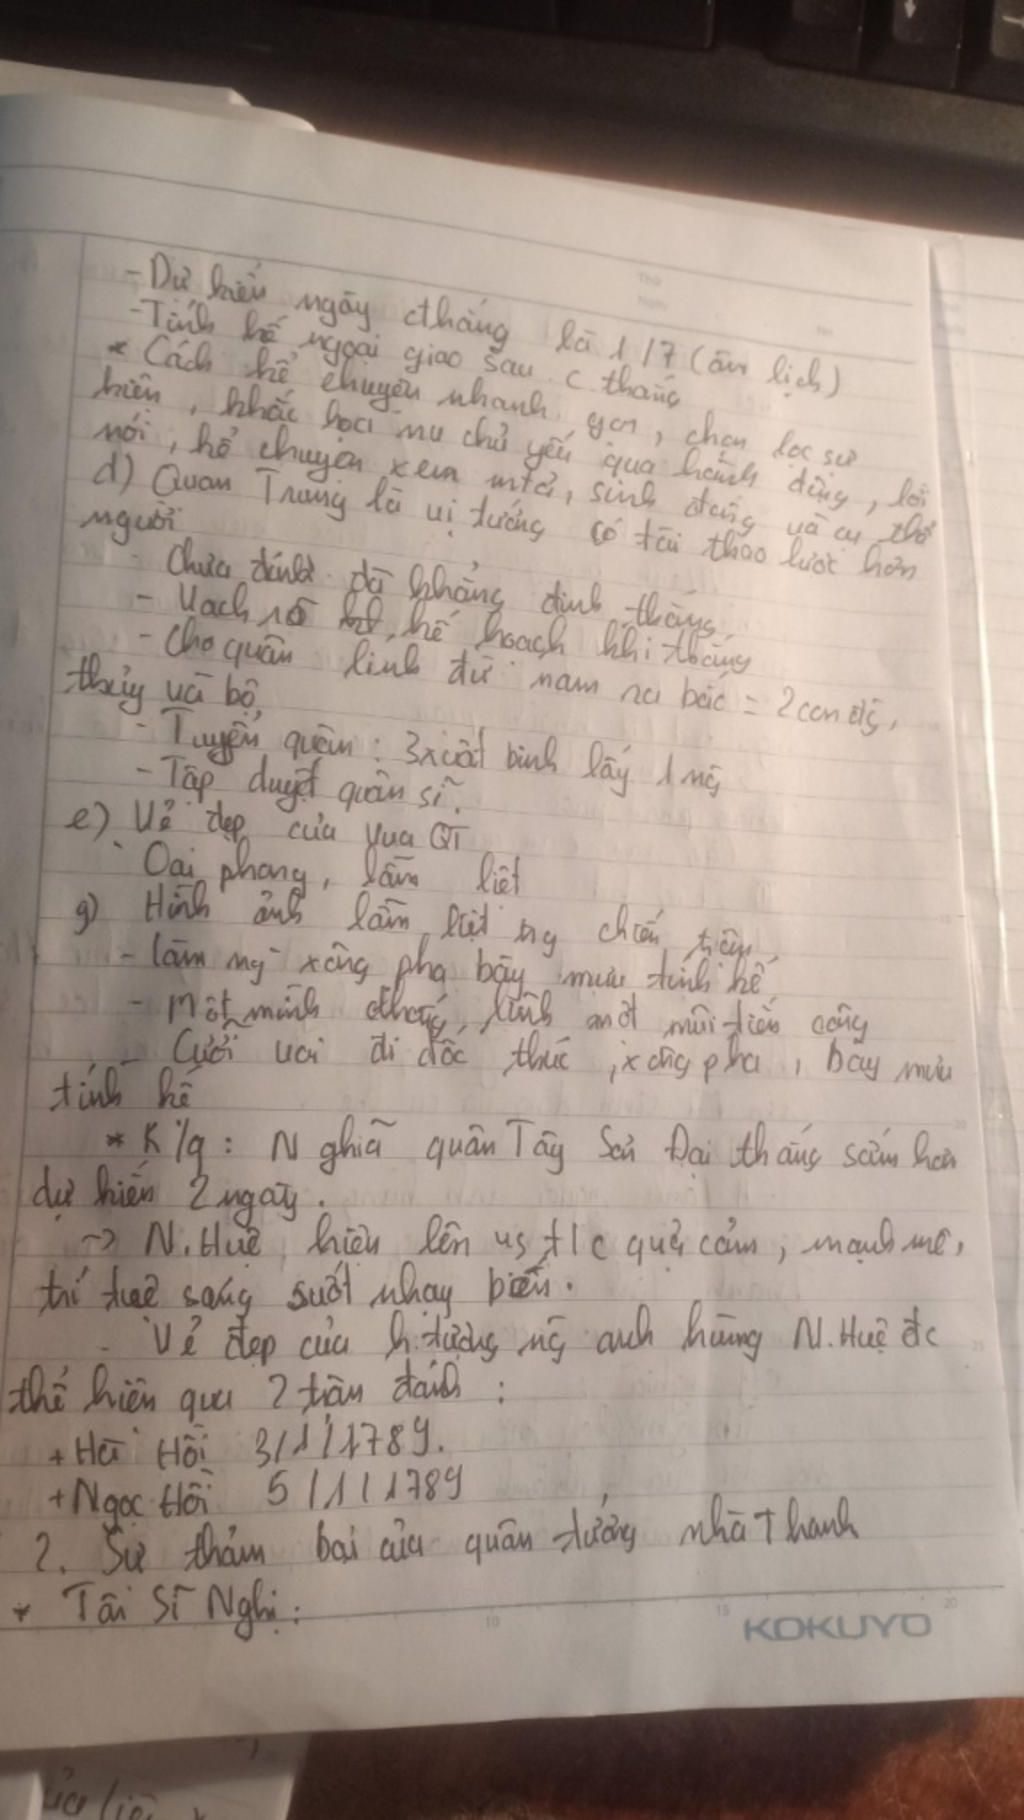 - Dự kiến ngày cthắng là 1/7 (âm lịch)
- Tính kế ngoại giao sau c thắng
* Cách kể chuyện nhanh, gọn, chọn lọc sự
kiện, khắc họa nv chủ yếu qua hành động, lời
nói, kể chuyện xen mtả, sinh động và cụ thể
d) Quan Trung là vị tướng có tài thao lược hơn
người
- Chưa đánh đã khẳng định thắng
- Vạch rõ kế hoạch khi thắng
- Cho quân lính đi từ nam ra bắc = 2 con đg,
thủy và bộ
- Tuyển quân: 3 xuất binh lấy 1 ng
- Tập duyệt quân sĩ.
e) Vẻ đẹp của vua QT
Oai phong, lẫm liệt
g) Hình ảnh lẫm liệt trg chiến trận
- làm ng xông pha bày mưu tính kế
- Một mình thống lĩnh một mũi tiến công
- Cưỡi voi đi đốc thúc, xông pha, bày mưu
tính kế
* K/q: Nghĩa quân Tây Sơn Đại thắng sớm hơn
dự kiến 2 ngày.
-> N. Huệ hiện lên vs t/c quả cảm, mạnh mẽ,
trí tuệ sáng suốt nhạy biến.
- Vẻ đẹp của h.tượng ng anh hùng N. Huệ đc
thể hiện qua 2 trận đánh:
+ Hà Hồi 3/1/1789.
+ Ngọc Hồi 5/1/1789
2. Sự thảm bại của quân tướng nhà Thanh
* Tôn Sĩ Nghị:
KOKUYO